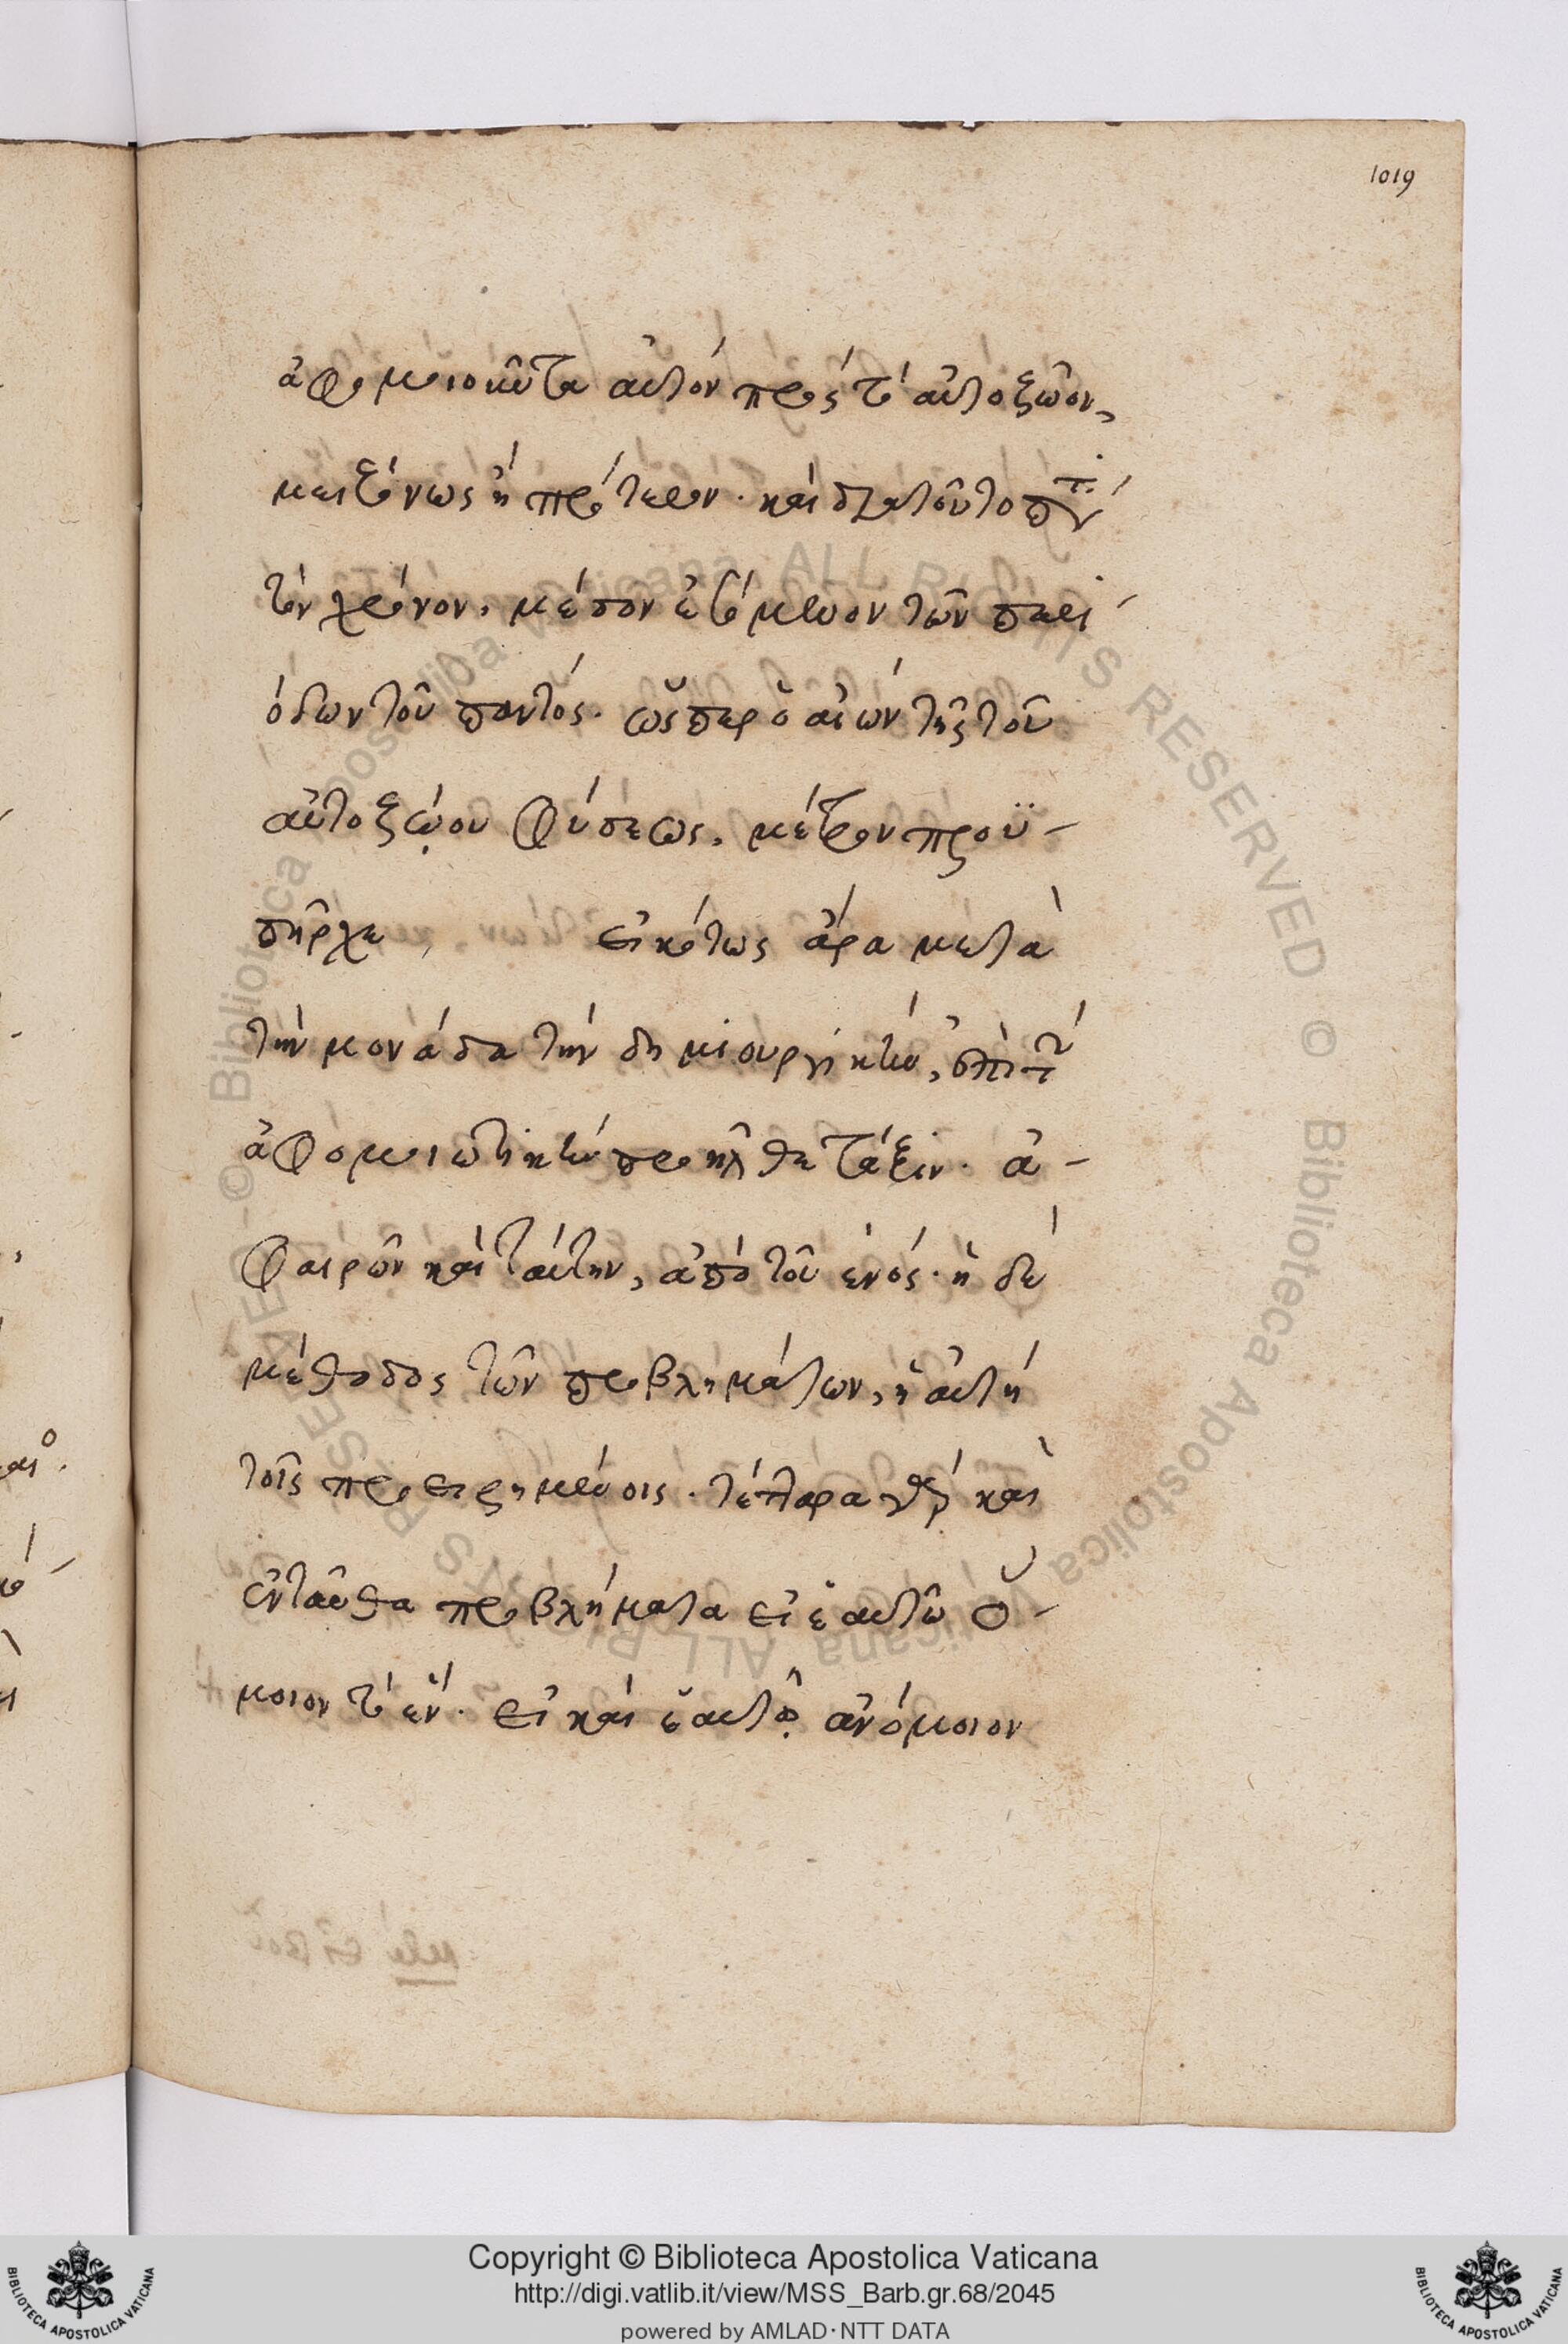 1019
ἀφομοιοῦντα αὐτὸν πρὸς τὸ αὐτοζῶον,
μειζόνως ἢ πρότερον. καὶ διὰ τοῦτο
τὸν χρόνον, μέσον ἑπόμενον τῶν περι-
όδων τοῦ παντός. ὥσπερ ὁ αἰὼν τῆς τοῦ
αὐτοζώου φύσεως, μέτρον προϋ-
πῆρχε, εἰκότως ἄρα μετὰ
τὴν μονάδα τὴν δημιουργικὴν, ἐπὶ τὴν
ἀφομοιωτικὴν προῆλθε τάξιν. ἀ-
φαιρῶν καὶ ταύτην, ἀπὸ τοῦ ἑνός. ἡ δὲ
μέθοδος τῶν προβλημάτων, ἡ αὐτὴ
τοῖς προειρημένοις. τέτταρα γὰρ καὶ
ἐνταῦθα προβλήματα εἰ ἑαυτῶ ὅ-
μοιον τὸ ἕν. εἰ καὶ ἑαυτῷ ἀνόμοιον
Copyright © Biblioteca Apostolica Vaticana
http://digi.vatlib.it/view/MSS_Barb.gr.68/2045
powered by AMLAD·NTT DATA
BIBLIOTECA APOSTOLICA VATICANA
BIBLIOTECA APOSTOLICA VATICANA